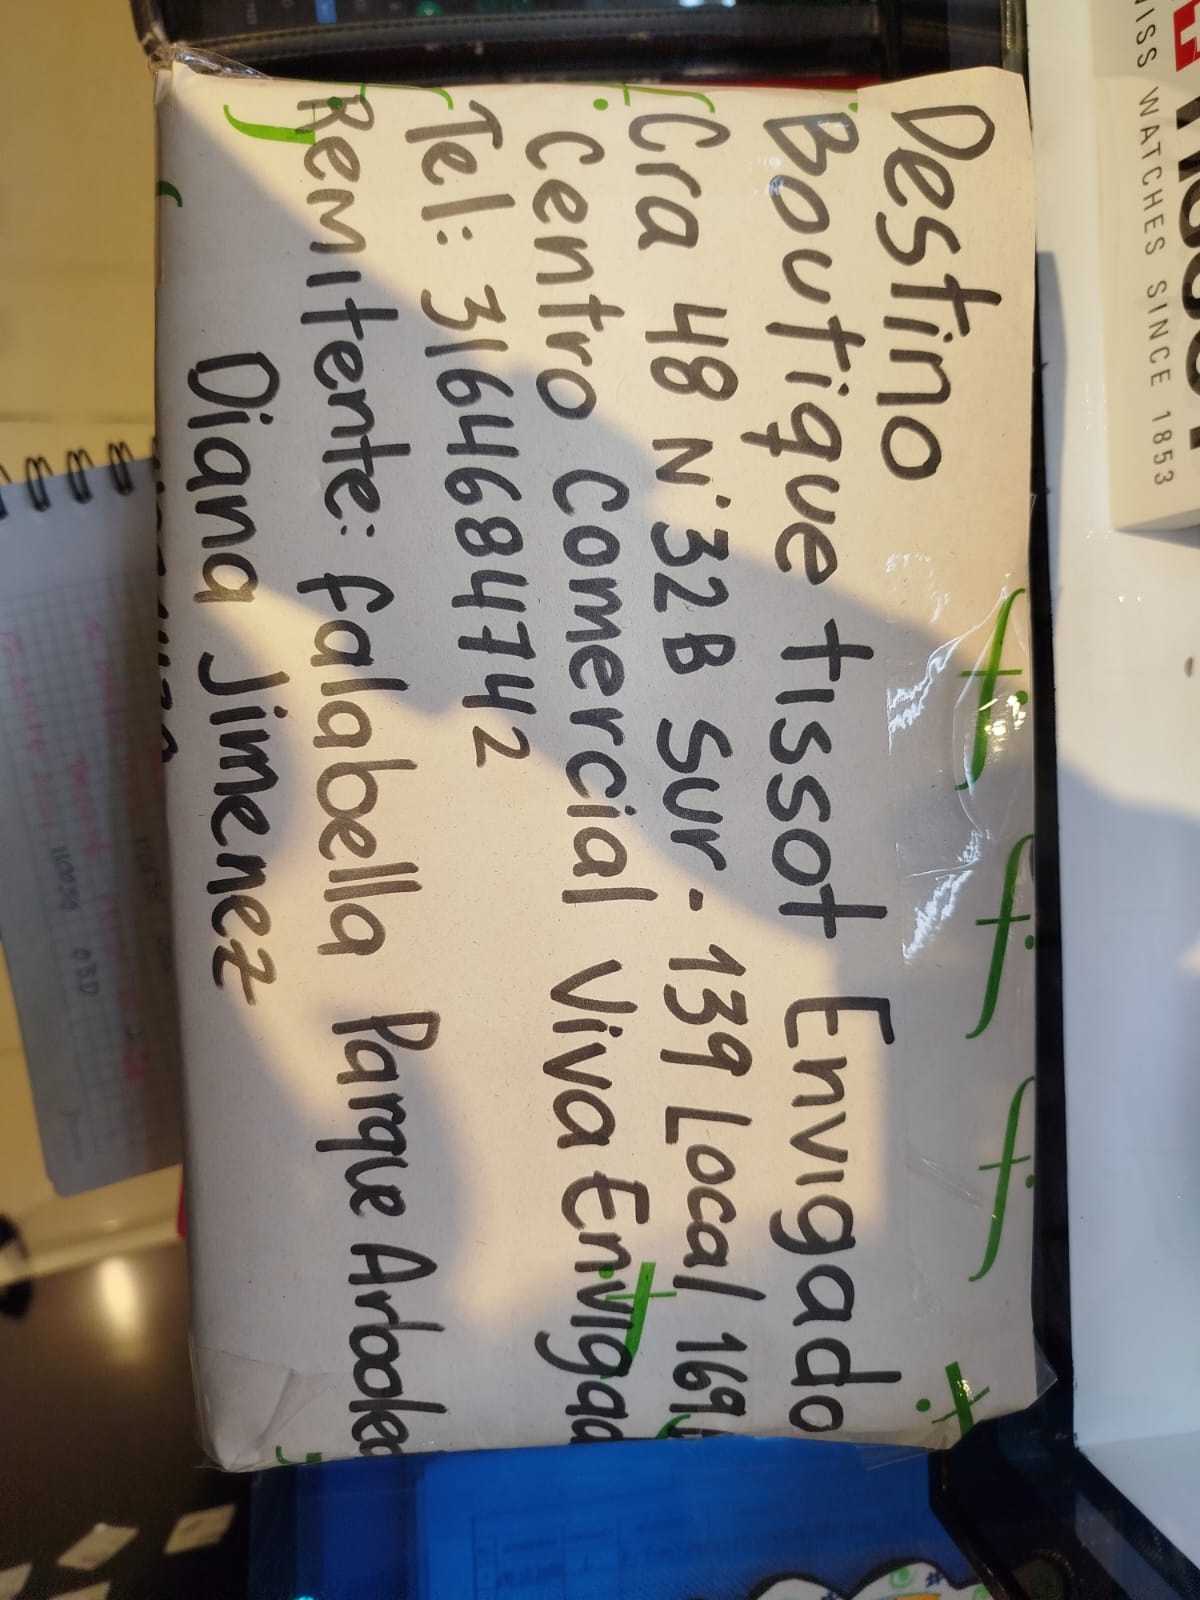 Destino
Boutique tissot Envigado
Cra 48 N° 32B Sur - 139 Local 169
Centro Comercial Viva Envigad
Tel: 3164684742
Remitente: falabella Parque Arboled
Diana Jimenez
WISS WATCHES SINCE 1853